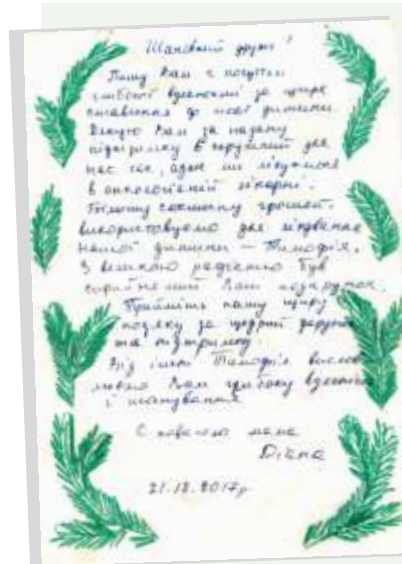 Шановний друже!
Пишу Вам с почуттям
глибокої вдячності за щире
ставлення до моєї дитини
Дякую Вам за надану
підтримку в скрутний для
нас час, адже ми лікуємося
в онкологічній лікарні.
Грошову
використовуємо для лікування
нашої дитини – Тимофія.
З великою радістю був
сприйнятий Ваш подарунок.
Прийміть нашу щиру
подяку за щедрий дарунок
та підтримку.
Від імені Тимофія вислов-
люємо Вам глибоку вдячність
і шанування
С повагою мама
Діана
21.12.2017р